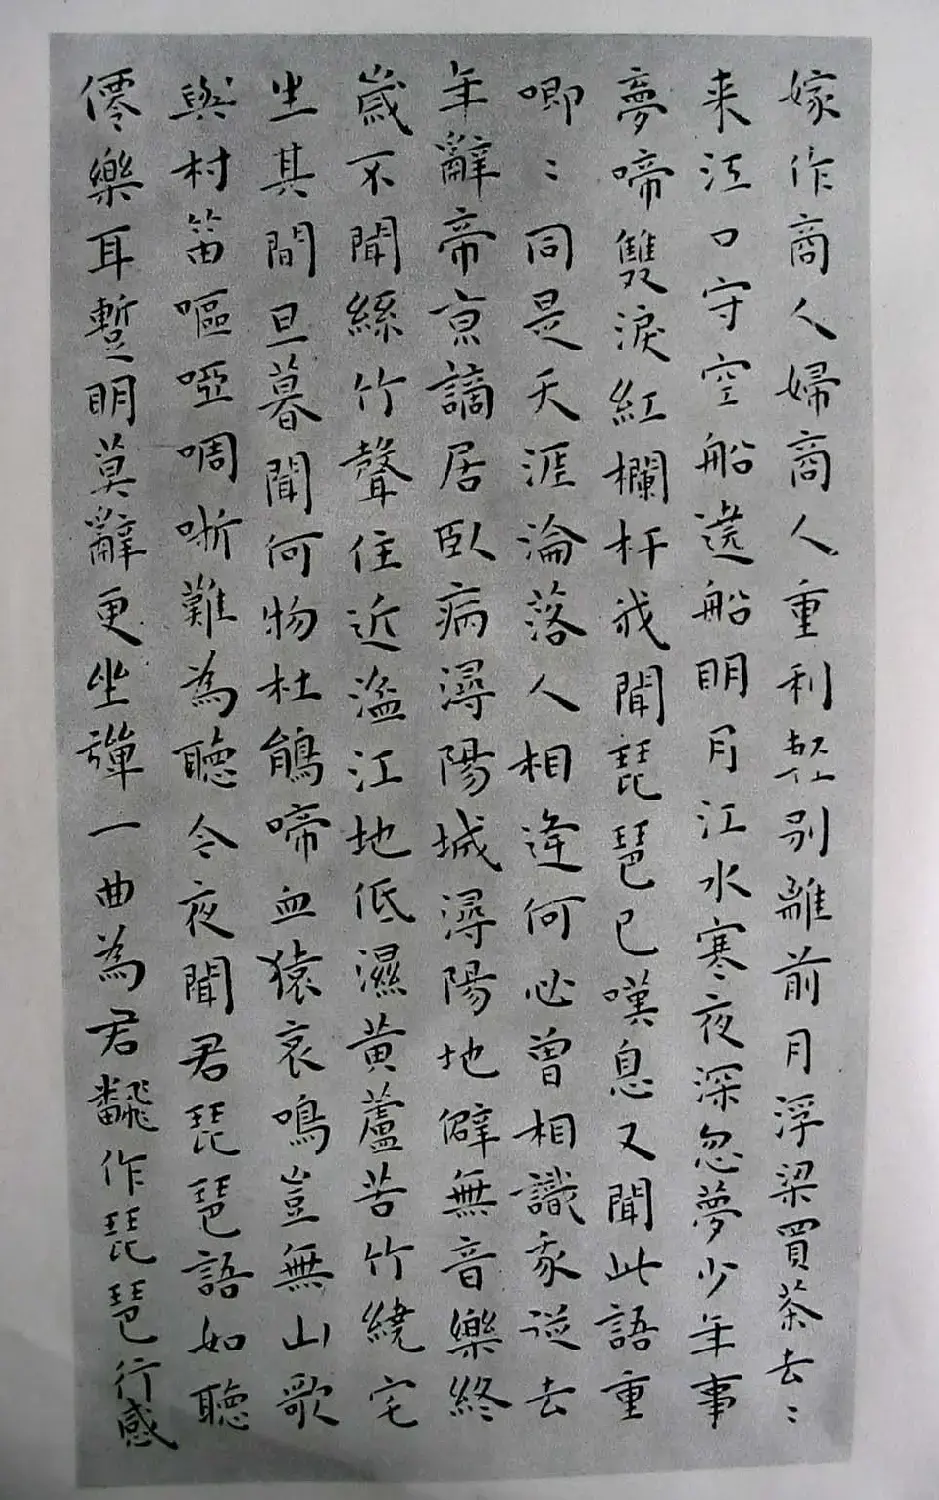 嫁作商人婦商人重利輕別離前月浮梁買茶去〻
来江口守空船遶船明月江水寒夜深忽夢少年事
夢啼雙淚紅欄杆我聞琵琶已嘆息又聞此語重
唧〻同是天涯淪落人相逢何必曾相識我從去
年辭帝京謫居臥病潯陽城潯陽地僻無音樂終
歲不聞絲竹聲住近湓江地低濕黃蘆苦竹繞宅
生其間旦暮聞何物杜鵑啼血猿哀鳴豈無山歌
與村笛嘔啞啁哳難為聽今夜聞君琵琶語如聽
僊樂耳暫明莫辭更坐彈一曲為君飜作琵琶行感